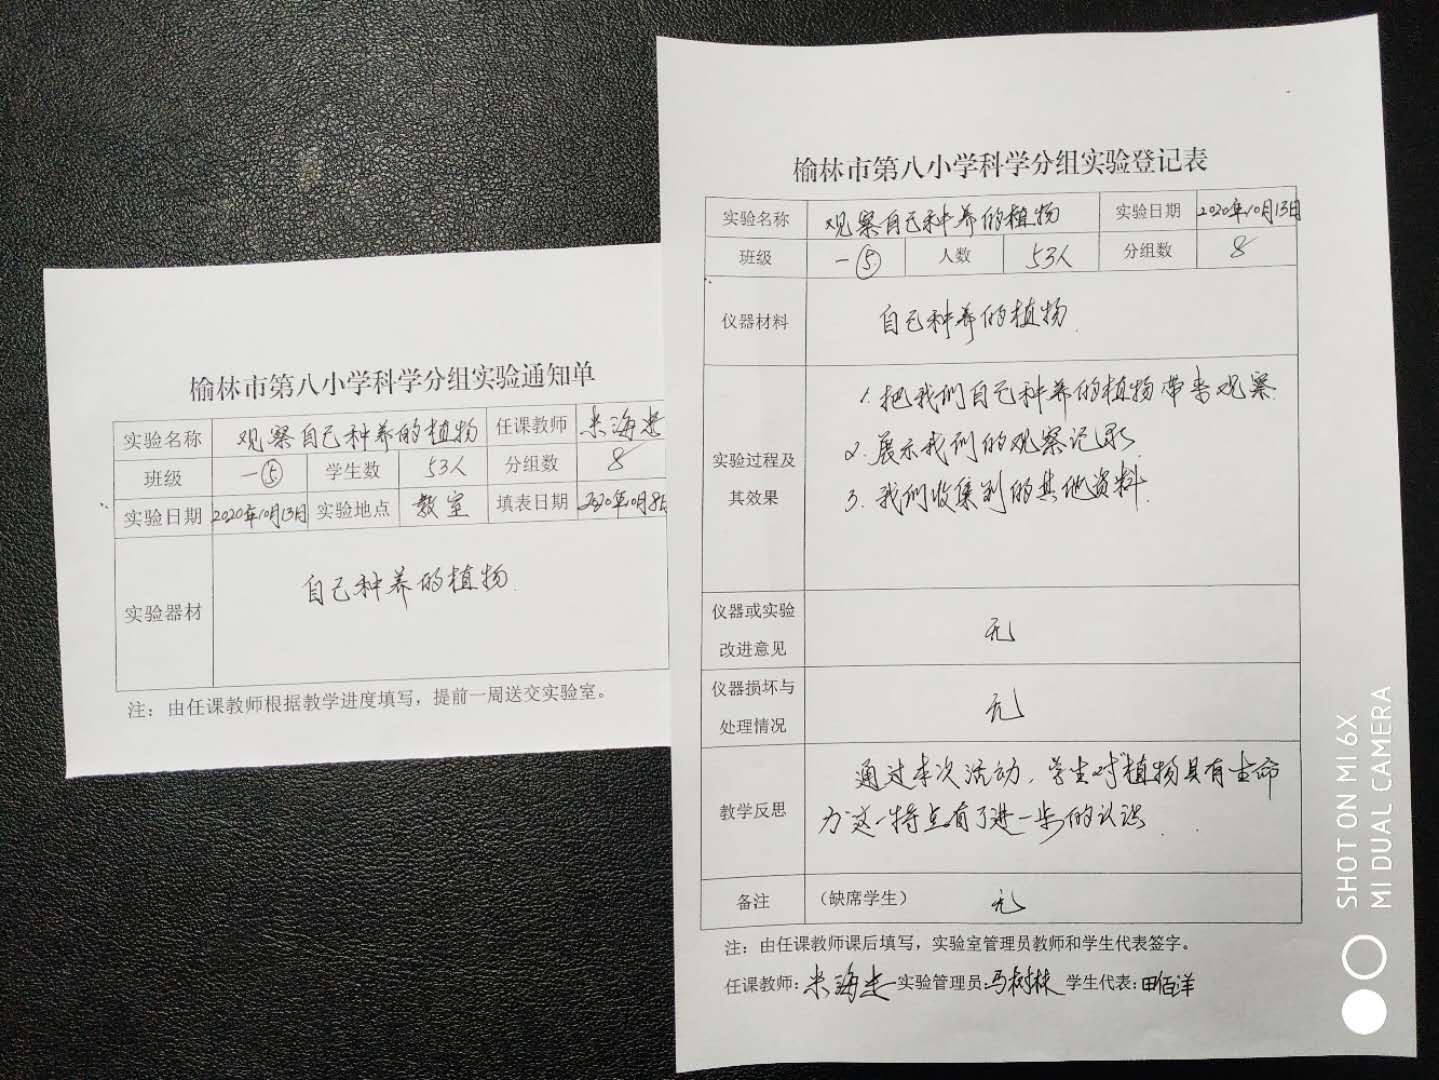 榆林市第八小学科学分组实验通知单
实验名称 观察自己种养的植物 任课教师 米海忠
班级 一⑤ 学生数 53人 分组数 8
实验日期 2020年10月13日 实验地点 教室 填表日期 2020年10月8日
实验器材 自己种养的植物.
注：由任课教师根据教学进度填写，提前一周送交实验室。
榆林市第八小学科学分组实验登记表
实验名称 观察自己种养的植物 实验日期 2020年10月13日
班级 一⑤ 人数 53人 分组数 8
仪器材料 自己种养的植物.
实验过程及
其效果
1.把我们自己种养的植物带来观察.
2.展示我们的观察记录
3.我们收集到的其他资料.
仪器或实验
改进意见
无
仪器损坏与
处理情况
无
教学反思
通过本次活动，学生对植物具有生命
力这一特点有了进一步的认识.
备注 （缺席学生） 无
注：由任课教师课后填写，实验室管理员教师和学生代表签字。
任课教师： 实验管理员：马树林 学生代表：田佰洋
SHOT ON MI 6X
MI DUAL CAMERA